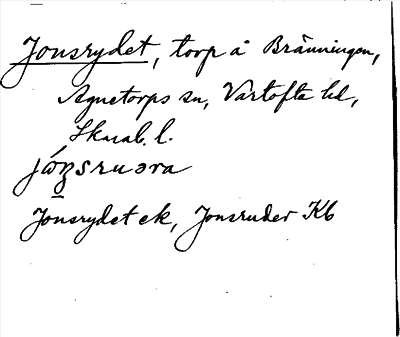 Jonsrydet, torp å Bränningen,
Agnetorps sn, Vartofta hd,
Skarab. l.
jónsruəra
Jonsrydet ek, Jonsruder Kb